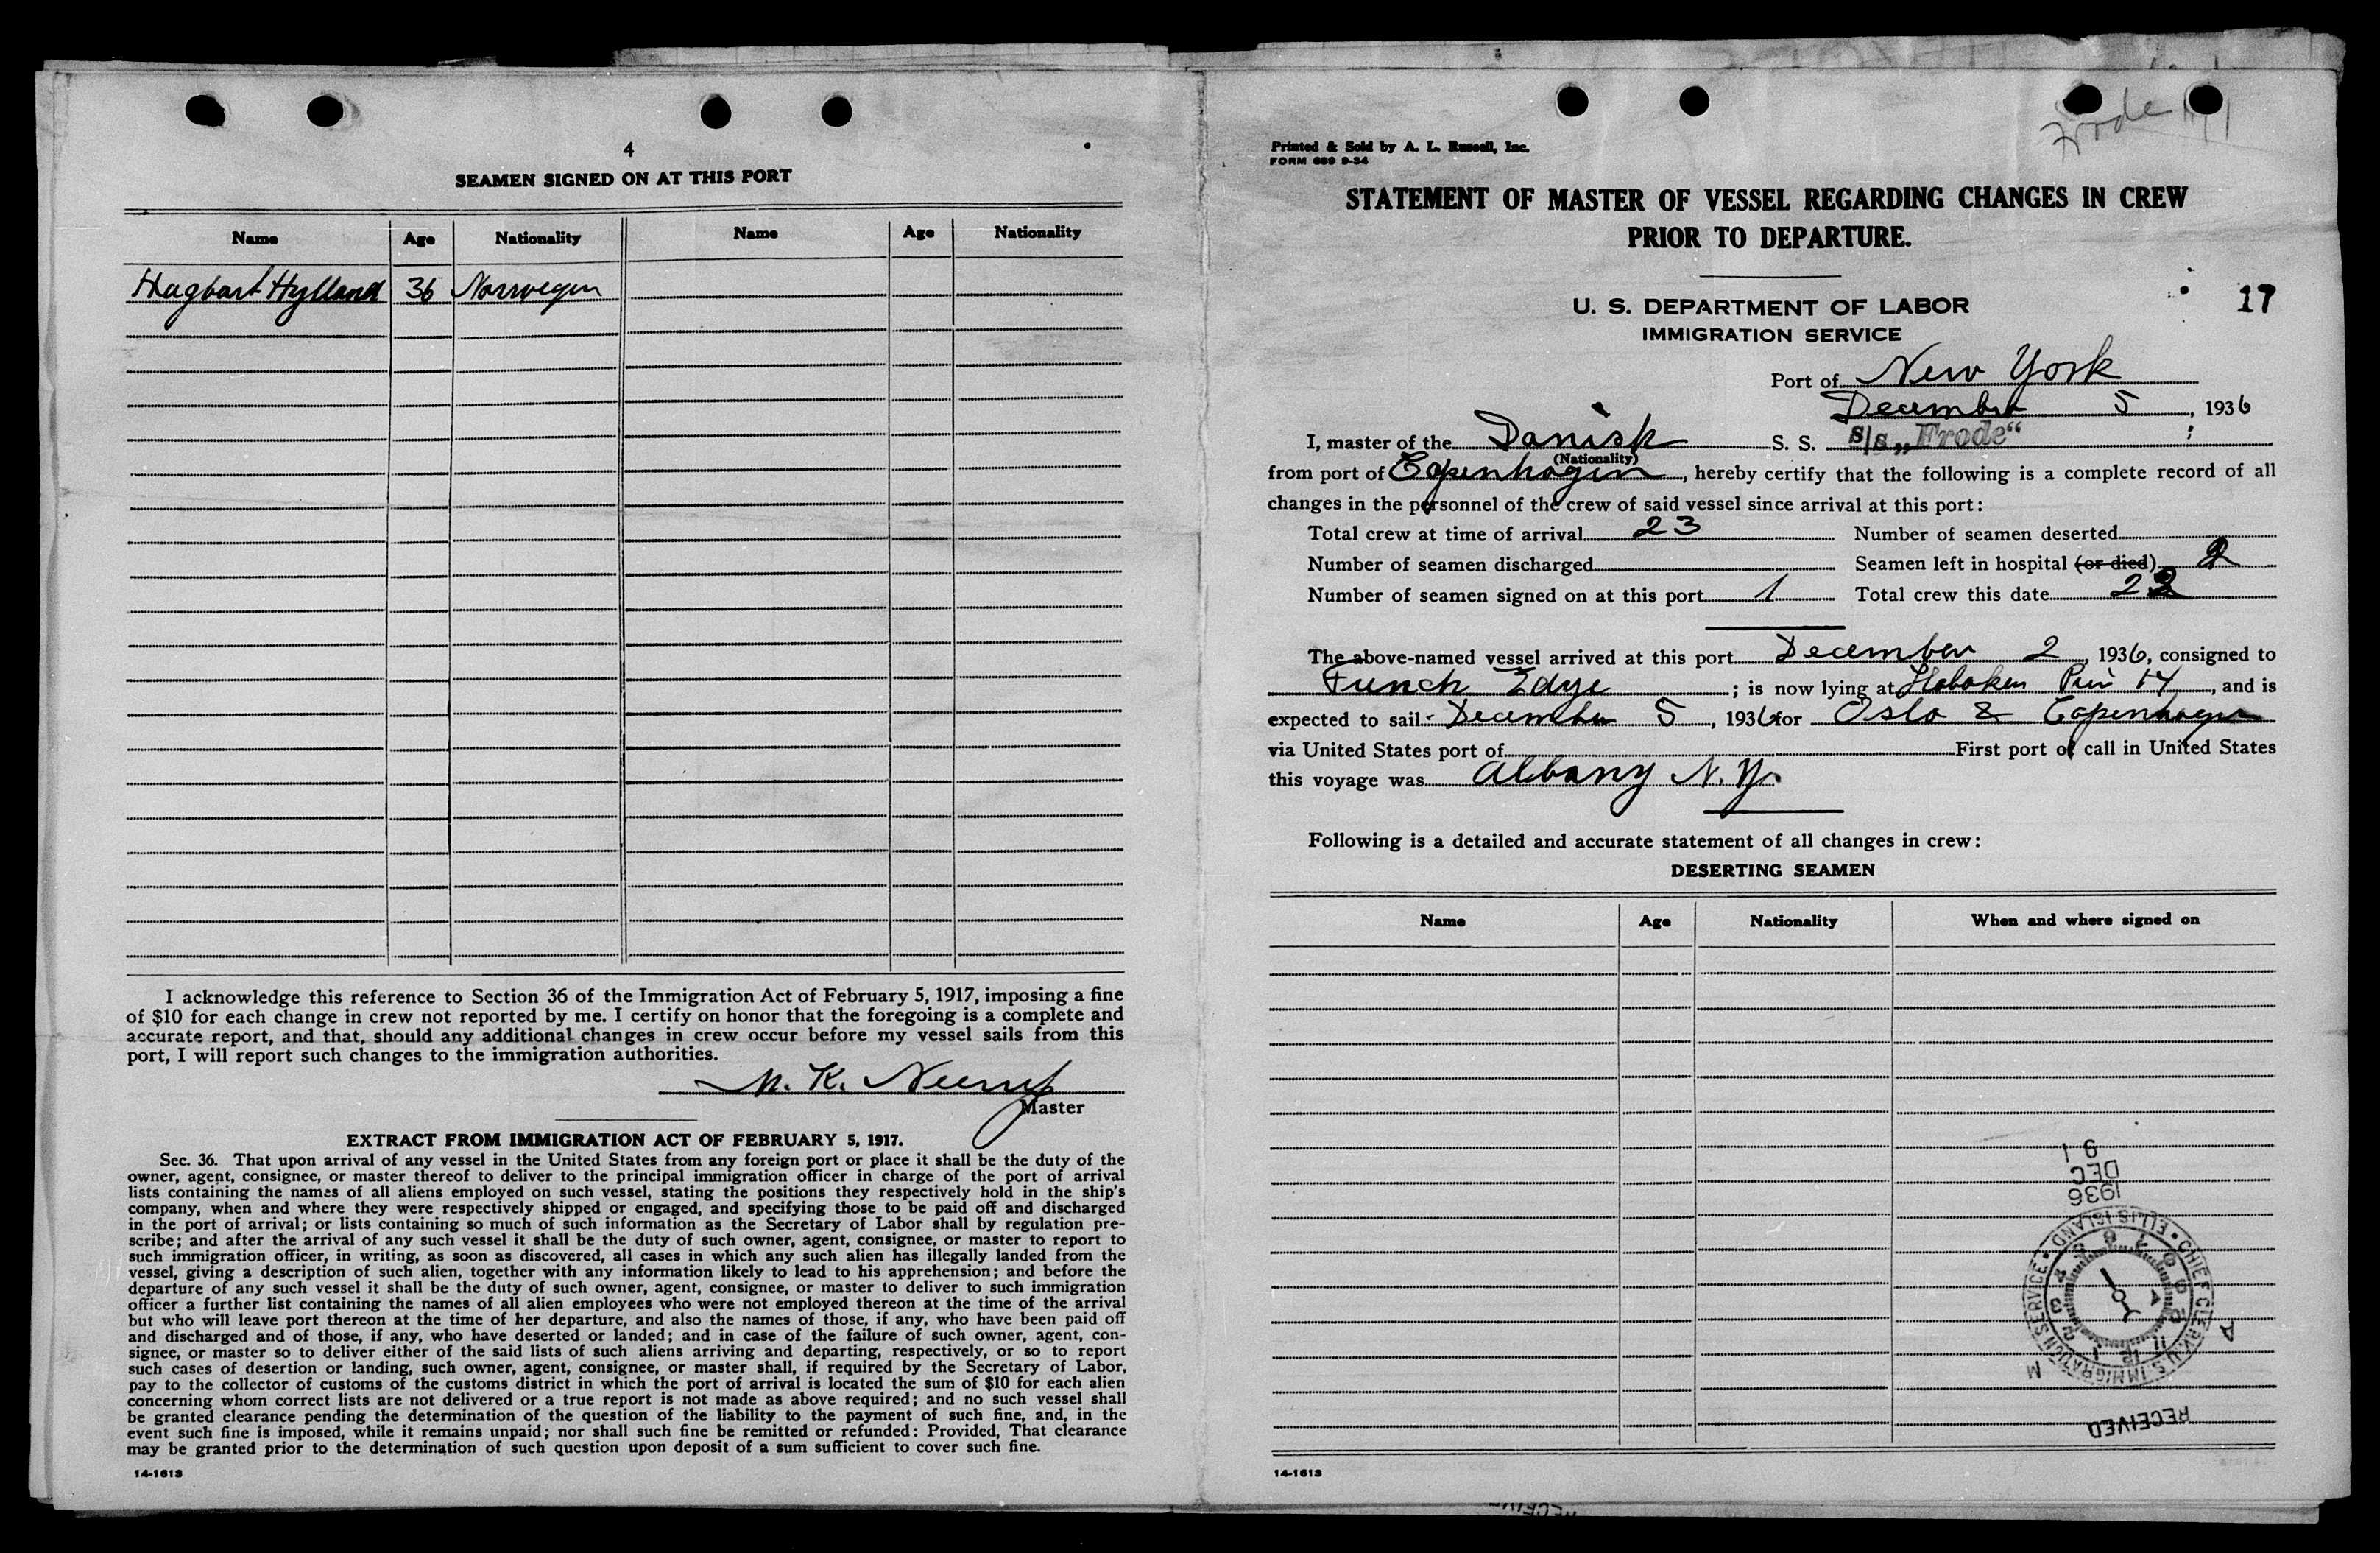 4
SEAMEN SIGNED ON AT THIS PORT
Name Age Nationality Name Age Nationality
Hagbart Hylland 36 Norwegen
I acknowledge this reference to Section 36 of the Immigration Act of February 5, 1917, imposing a fine
of $10 for each change in crew not reported by me. I certify on honor that the foregoing is a complete and
accurate report, and that, should any additional changes in crew occur before my vessel sails from this
port, I will report such changes to the immigration authorities.
K.
Master
EXTRACT FROM IMMIGRATION ACT OF FEBRUARY 5, 1917.
Sec. 36. That upon arrival of any vessel in the United States from any foreign port or place it shall be the duty of the
owner, agent, consignee, or master thereof to deliver to the principal immigration officer in charge of the port of arrival
lists containing the names of all aliens employed on such vessel, stating the positions they respectively hold in the ship's
company, when and where they were respectively shipped or engaged, and specifying those to be paid off and discharged
in the port of arrival; or lists containing so much of such information as the Secretary of Labor shall by regulation pre-
scribe; and after the arrival of any such vessel it shall be the duty of such owner, agent, consignee, or master to report to
such immigration officer, in writing, as soon as discovered, all cases in which any such alien has illegally landed from the
vessel, giving a description of such alien, together with any information likely to lead to his apprehension; and before the
departure of any such vessel it shall be the duty of such owner, agent, consignee, or master to deliver to such immigration
officer a further list containing the names of all alien employees who were not employed thereon at the time of the arrival
but who will leave port thereon at the time of her departure, and also the names of those, if any, who have been paid off
and discharged and of those, if any, who have deserted or landed; and in case of the failure of such owner, agent, con-
signee, or master so to deliver either of the said lists of such aliens arriving and departing, respectively, or so to report
such cases of desertion or landing, such owner, agent, consignee, or master shall, if required by the Secretary of Labor,
pay to the collector of customs of the customs district in which the port of arrival is located the sum of $10 for each alien
concerning whom correct lists are not delivered or a true report is not made as above required; and no such vessel shall
be granted clearance pending the determination of the question of the liability to the payment of such fine, and, in the
event such fine is imposed, while it remains unpaid; nor shall such fine be remitted or refunded: Provided, That clearance
may be granted prior to the determination of such question upon deposit of a sum sufficient to cover such fine.
14-1613
Frode
Printed & Sold by A. L. Russell, Inc.
FORM 689 9-34
STATEMENT OF MASTER OF VESSEL REGARDING CHANGES IN CREW
PRIOR TO DEPARTURE.
U. S. DEPARTMENT OF LABOR
17
IMMIGRATION SERVICE
Port of New York
December 5, 1936
I, master of the Danish S. S. S/s „Frode“;
(Nationality)
from port of Copenhagen, hereby certify that the following is a complete record of all
changes in the personnel of the crew of said vessel since arrival at this port:
Total crew at time of arrival 23 Number of seamen deserted
Number of seamen discharged Seamen left in hospital (or died) 2
Number of seamen signed on at this port 1 Total crew this date 22
The above-named vessel arrived at this port December 2, 1936, consigned to
Funch Edye; is now lying at Hoboken Pier 14, and is
expected to sail December 5, 1936 for Oslo & Copenhagen
via United States port of First port of call in United States
this voyage was Albany N. Y.
Following is a detailed and accurate statement of all changes in crew:
DESERTING SEAMEN
Name Age Nationality When and where signed on
1936
DEC
CHIEF CLERK U.S. IMMIGRATION SERVICE • ELLIS ISLAND •
A M
RECEIVED
14-1613